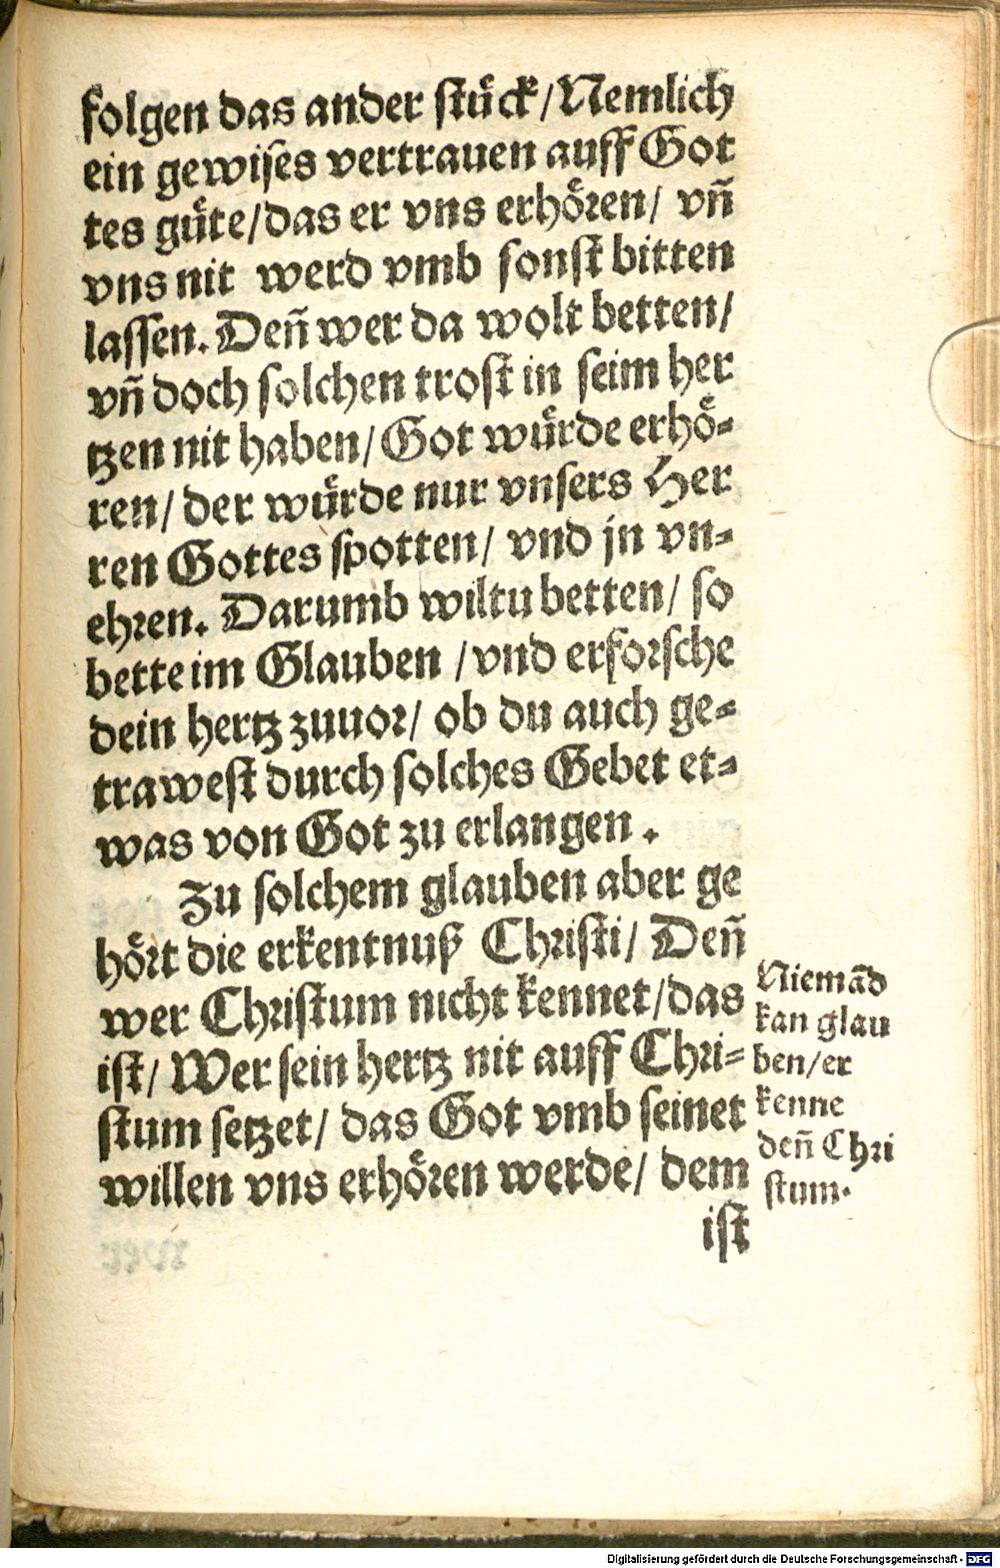 folgen das ander ſtuͤck/Nemlich
ein gewiſes vertrauen auff Got
tes guͤte/das er vns erhoͤꝛen/ vñ
vns nit werd vmb ſonſt bitten
laſſen. Deñ wer da wolt betten/
vñ doch ſolchen troſt in ſeim her
tzen nit haben/Got wuͤrde erhoͤ-
ren/ der wuͤrde nur vnſers Her
ren Gottes ſpotten/ vnd jn vn-
ehꝛen. Darumb wiltu betten/ ſo
bette im Glauben /vnd erfoꝛſche
dein hertz zuuoꝛ/ ob du auch ge-
traweſt durch ſolches Gebet et-
was von Got zu erlangen .
Zu ſolchem glauben aber ge
hoͤꝛt die erkentnuß Chꝛiſti/ Deñ
wer Chꝛiſtum nicht kennet/das
iſt/ Wer ſein hertz nit auff Chꝛi-
ſtum ſetzet/ das Got vmb ſeinet
willen vns erhoͤꝛen werde/ dem
iſt
Niemãd
kan glau
ben/er
kenne
deñ Chꝛi
ſtum.
Digitalisierung gefördert durch die Deutsche Forschungsgemeinschaft - DFG